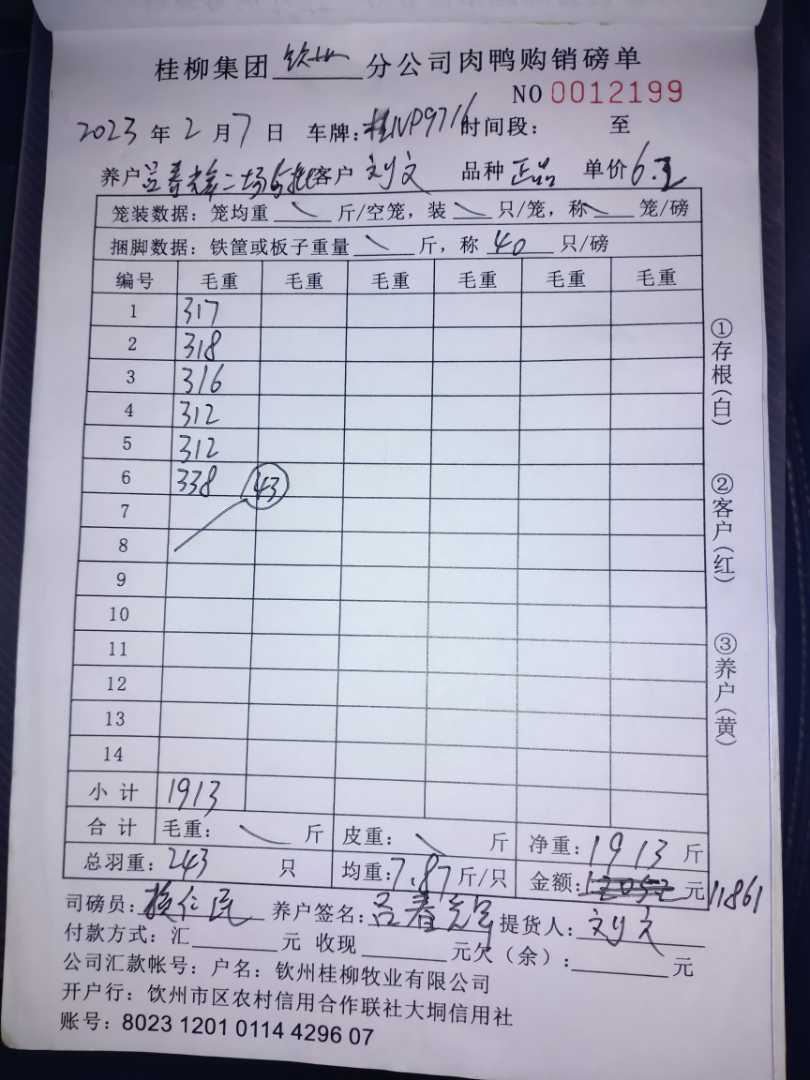 桂柳集团 钦州 分公司肉鸭购销磅单
NO 0012199
2023 年 2 月 7 日 车牌：桂NP9716 时间段： 至
养户 吕春 二场 客户 刘文 品种 正品 单价 6.2
笼装数据：笼均重 \ 斤/空笼，装 \ 只/笼，称 \ 笼/磅
捆脚数据：铁筐或板子重量 \ 斤，称 40 只/磅
编号 毛重 毛重 毛重 毛重 毛重 毛重
1 317
2 318
3 316
4 312
5 312
6 338 43
7
8
9
10
11
12
13
14
小计 1913
合计 毛重： \ 斤 皮重： \ 斤 净重：1913 斤
总羽重：243 只 均重：7.87 斤/只 金额： 元 11861
司磅员： 养户签名：吕春 提货人：刘文
付款方式：汇 元 收现 元欠（余）： 元
公司汇款帐号：户名：钦州桂柳牧业有限公司
开户行：饮州市区农村信用合作联社大垌信用社
账号：8023 1201 0114 4296 07
①存根（白）
②客户（红）
③养户（黄）